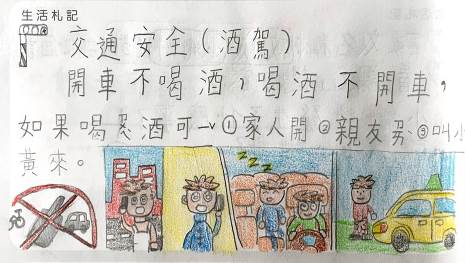 生活札記
交通安全(酒駕)
開車不喝酒,喝酒不開車,
如果喝酒可ㄧ①家人開②親友③叫小
黃來。
ZZZZ